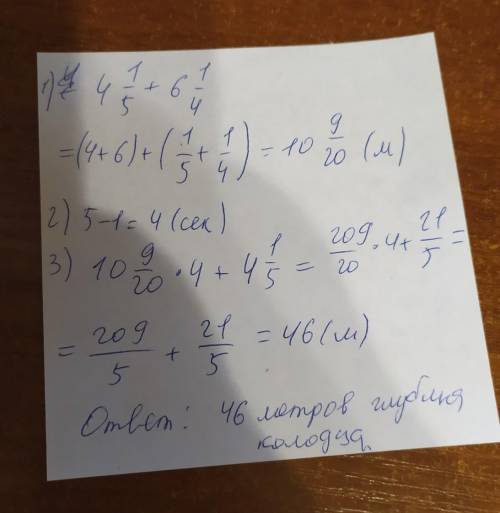 1) 4 1/5 + 6 1/4
=(4+6)+(1/5+1/4)=10 9/20 (м)
2) 5-1=4(сек)
3) 10 9/20 · 4 + 4 1/5 = 209/20 · 4 + 21/5 =
= 209/5 + 21/5 = 46(м)
Ответ: 46 метров глубина
колодца.